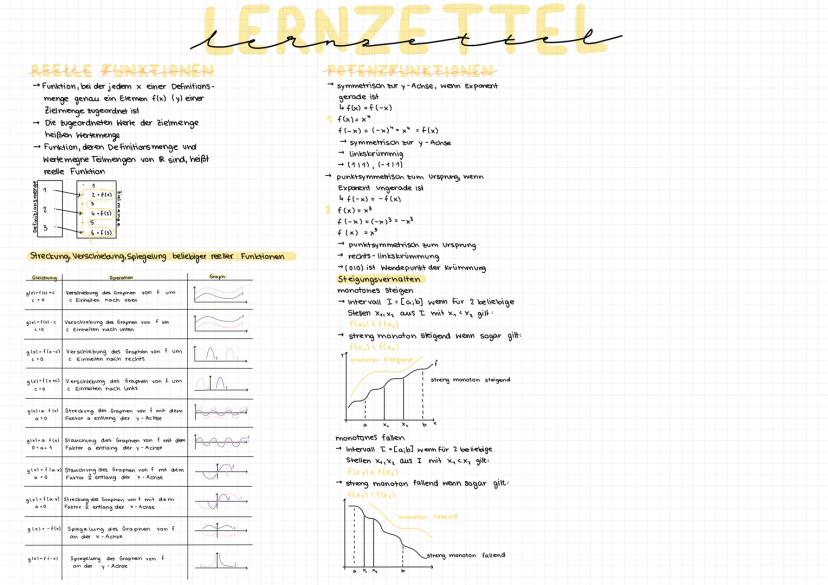 LERNZETTEL
lernzettel
REELLE FUNKTIONEN
→ Funktion, bei der jedem x einer Definitions-
menge genau ein Elemen f(x) (y) einer
Zielmenge zugeordnet ist
→ Die zugeordneten Werte der Zielmenge
heißen Wertemenge
→ Funktion, deren Definitionsmenge und
Wertemenge Teilmengen von ℝ sind, heißt
reelle Funktion
Definitionsmenge
1
2
3
1
2 = f(1)
3
4 = f(2)
5
6 = f(3)
Zielmenge
Streckung, Verschiebung, Spiegelung beliebiger reeller Funktionen
Gleichung Operation Graph
Verschiebung des Graphen von f um
c Einheiten nach oben
Verschiebung des Graphen von f um
c Einheiten nach unten
Verschiebung des Graphen von f um
c Einheiten nach rechts
Verschiebung des Graphen von f um
c Einheiten nach links
Streckung des Graphen von f mit dem
Faktor a entlang der y-Achse
Stauchung des Graphen von f mit dem
Faktor a entlang der y-Achse
Stauchung des Graphen von f mit dem
entlang der x-Achse
Streckung des Graphen von f mit dem
entlang der x-Achse
g(x) = -f(x) Spiegelung des Graphen von f
an der x-Achse
g(x) = f(-x) Spiegelung des Graphen von f
an der y-Achse
POTENZFUNKTIONEN
→ symmetrisch zur y-Achse, wenn Exponent
gerade ist
↳ f(x) = f(-x)
1 f(x) = x⁴
f(-x) = (-x)⁴ = x⁴ = f(x)
→ symmetrisch zur y-Achse
→ linkskrümmig
→ (1|1), (-1|1)
→ punktsymmetrisch zum Ursprung, wenn
Exponent ungerade ist
↳ f(-x) = -f(x)
2 f(x) = x³
f(-x) = (-x)³ = -x³
f(x) = x³
→ punktsymmetrisch zum Ursprung
→ rechts-linkskrümmung
→ (0|0) ist Wendepunkt der Krümmung
Steigungsverhalten
monotones steigen
→ Intervall I = [a;b] wenn für 2 beliebige
Stellen x₁,x₂ aus I mit x₁ < x₂ gilt:
f(x₁) ≤ f(x₂)
→ streng monoton steigend wenn sogar gilt:
f(x₁) < f(x₂)
y
monoton steigend
f
streng monoton steigend
a x₁ x₂ b x
monotones fallen
→ Intervall I = [a;b] wenn für 2 beliebige
Stellen x₁,x₂ aus I mit x₁ < x₂ gilt:
f(x₁) ≥ f(x₂)
→ streng monoton fallend wenn sogar gilt:
monoton fallend
streng monoton fallend
a x₁ x₂ b